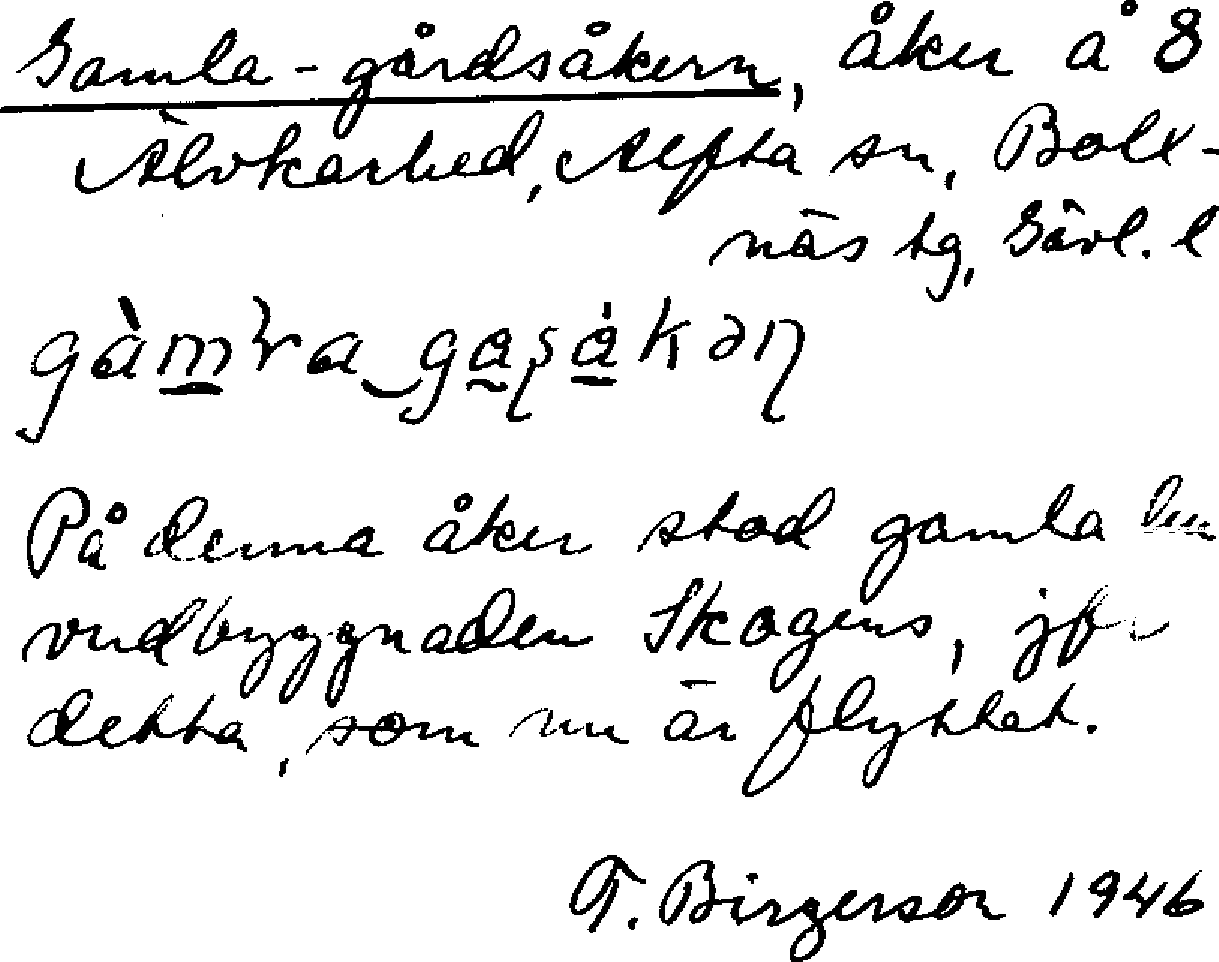 Gamla-gårdsåkern, åker å 8
Älvkarhed, Alfta sn, Boll-
näs tg, Gävl. l
På denna åker stod gamla hu
vudbyggnaden Skogens, jfr
detta, som nu är flyttat.
T. Birgerson 1946